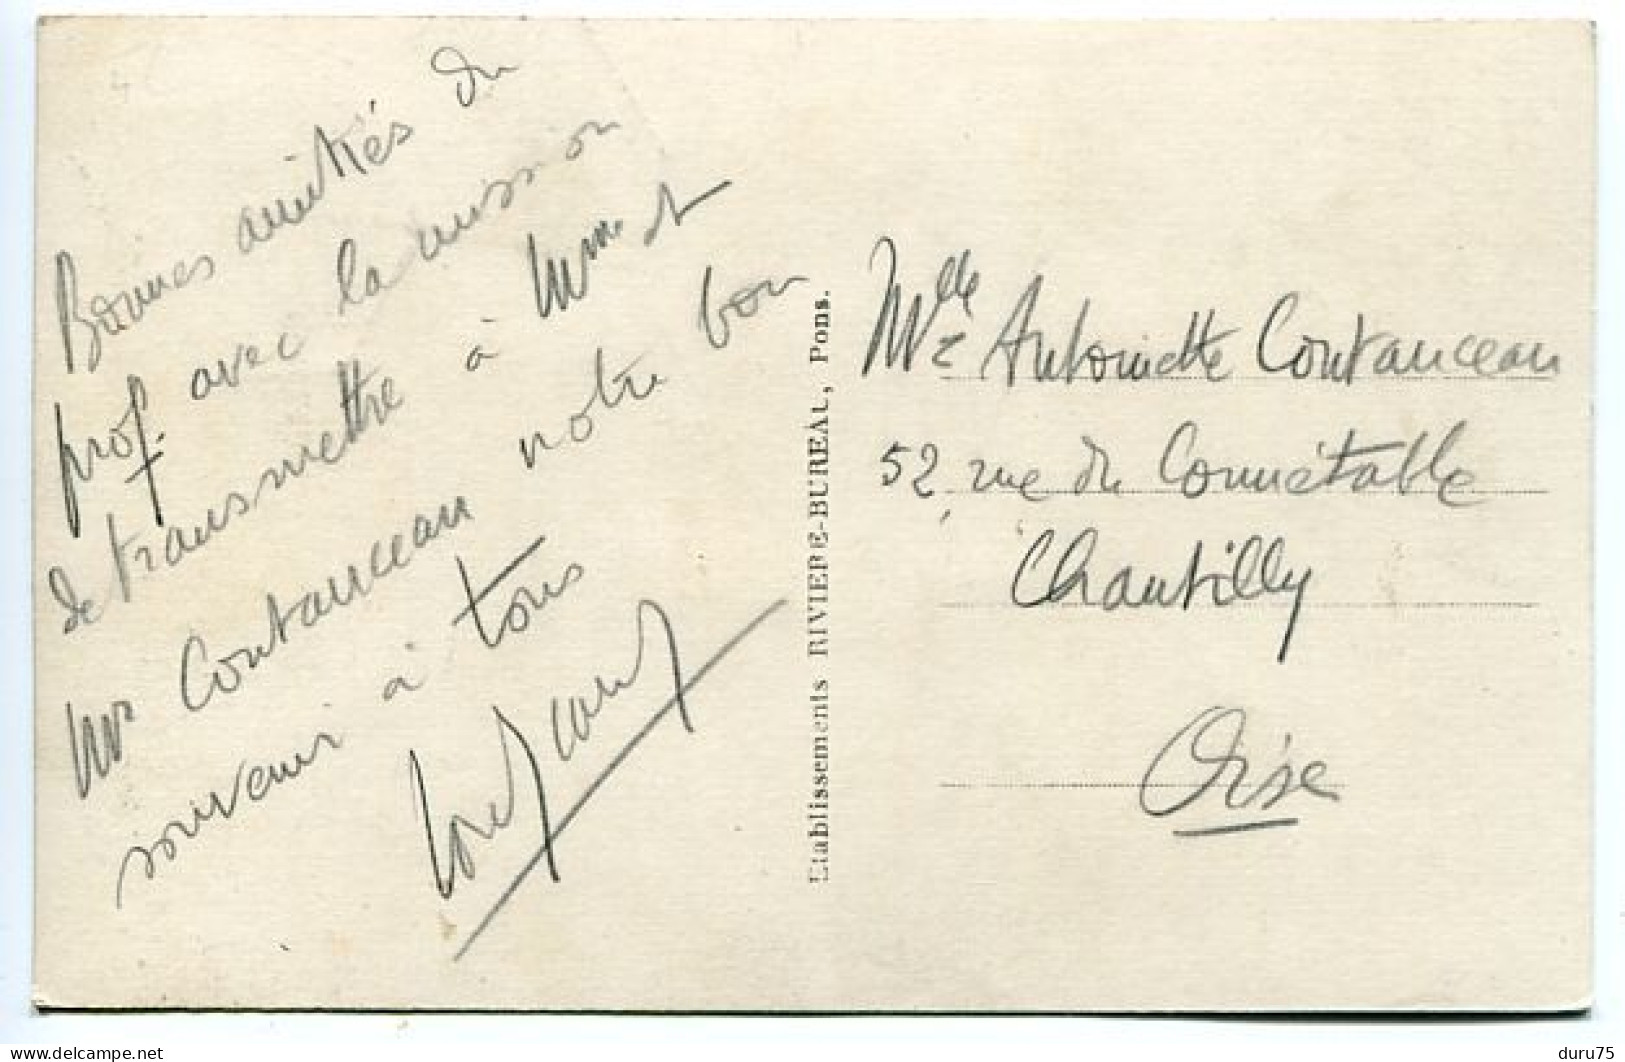 Bonnes amitiés du
prof. avec la mission
de transmettre à Mme et
Mr Contanceau notre bon
souvenir à tous
Etablissements RIVIERE-BUREAU, Pons.
Melle Antoinette Contanceau
52 rue du Connétable
Chantilly
Oise
delcampe.net
duru75